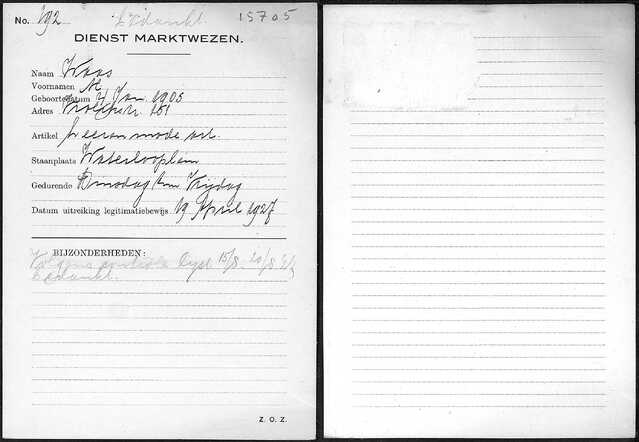 No. 192 bedankt. 15705
DIENST MARKTWEZEN.
Naam Waas
Voornamen M
Geboortedatum 4 Jan 1905
Adres 151
Artikel heeren mode art.
Staanplaats Waterlooplein
Gedurende Dinsdag t/m Vrijdag
Datum uitreiking legitimatiebewijs 19 April 1927
BIJZONDERHEDEN:
Volgens controle lijst 15/8 - 20/8
bedankt.
Z. O. Z.